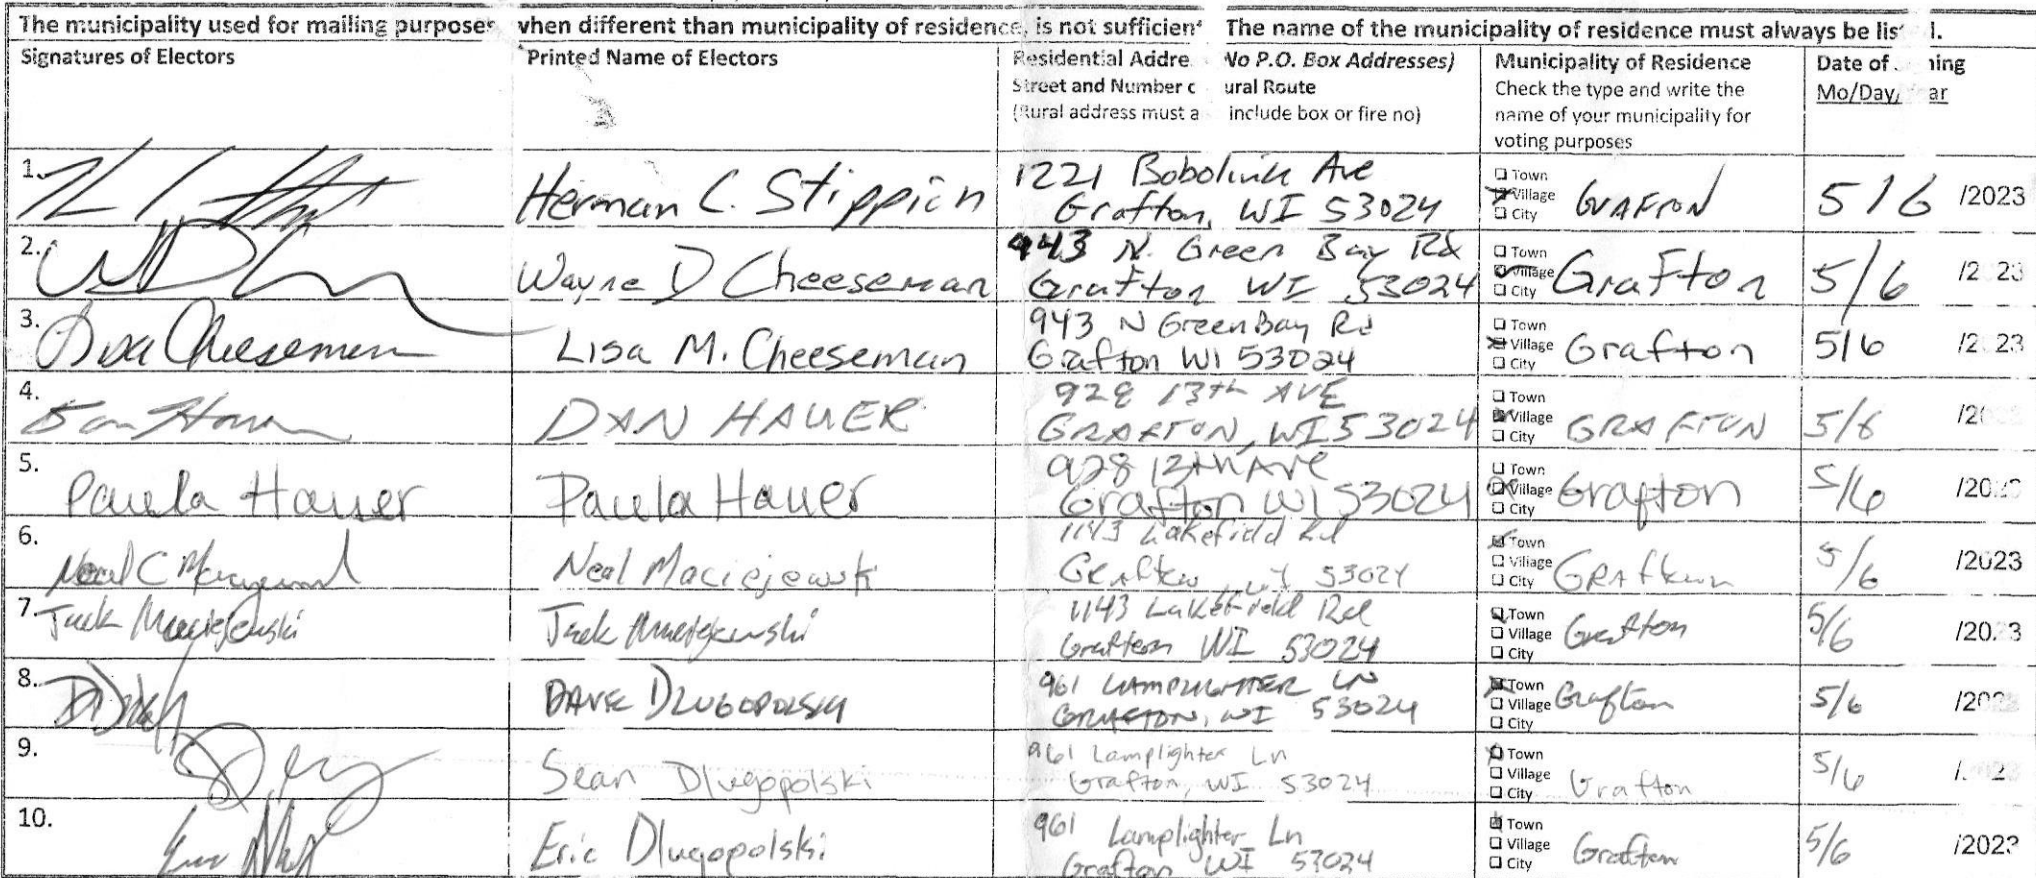 The municipality used for mailing purposes when different than municipality of residence, is not sufficient The name of the municipality of residence must always be lis
Signatures of Electors
Printed Name of Electors
Residential Addre No P.O. Box Addresses)
Street and Number ural Route
(Rural address must a include box or fire no)
Municipality of Residence
Check the type and write the
name of your municipality for
voting purposes
Date of ning
Mo/Day, ar
1.
Herman C. Stippich
1221 Bobolink Ave
Grafton, WI 53024
Town
Village
City
GRAFTON
5/6 /2023
2.
Wayne D Cheeseman
943 N. Green Bay Rd
Grafton WI 53024
Town
Village
City
Grafton
5/6 /2 23
3.
Lisa Cheeseman
Lisa M. Cheeseman
943 N Green Bay Rd
Grafton WI 53024
Town
Village
City
Grafton
5/6 /2 23
4.
Dan Hauer
DAN HAUER
928 13th AVE
GRAFTON, WI 53024
Town
Village
City
GRAFTON
5/6 /20
5.
Paula Hauer
Paula Hauer
928 13th Ave
Grafton WI 53024
Town
Village
City
Grafton
5/6 /20
6.
Neal C
Neal Maciejewski
1143 Lakefield Rd
Grafton, WI 53024
Town
Village
City
Grafton
5/6 /2023
7.
Jack Maciejewski
Jack Maciejewski
1143 Lakefield Rd
Grafton WI 53024
Town
Village
City
Grafton
5/6 /20 3
8.
DAVE DLUGOPOLSKI
961 LAMPLIGHTER LN
GRAFTON, WI 53024
Town
Village
City
Grafton
5/6 /202
9.
Sean Dlugopolski
961 Lamplighter Ln
Grafton, WI 53024
Town
Village
City
Grafton
5/6
10.
Eric Dlugopolski
961 Lamplighter Ln
Grafton WI 53024
Town
Village
City
Grafton
5/6 /2023